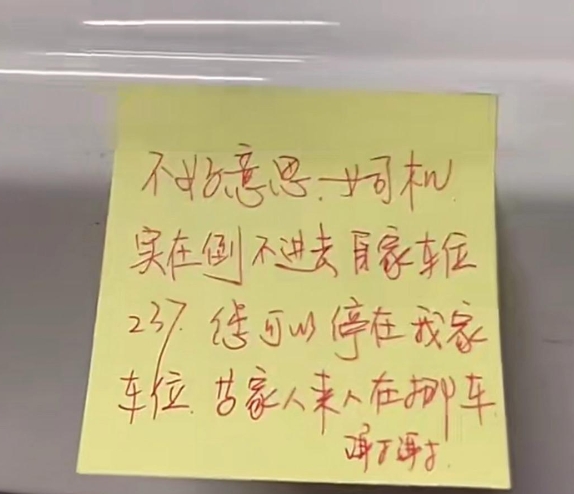 不好意思.女司机
实在倒不进去自家车位
237.您可以停在我家
车位.等家人来人在挪车
谢谢.